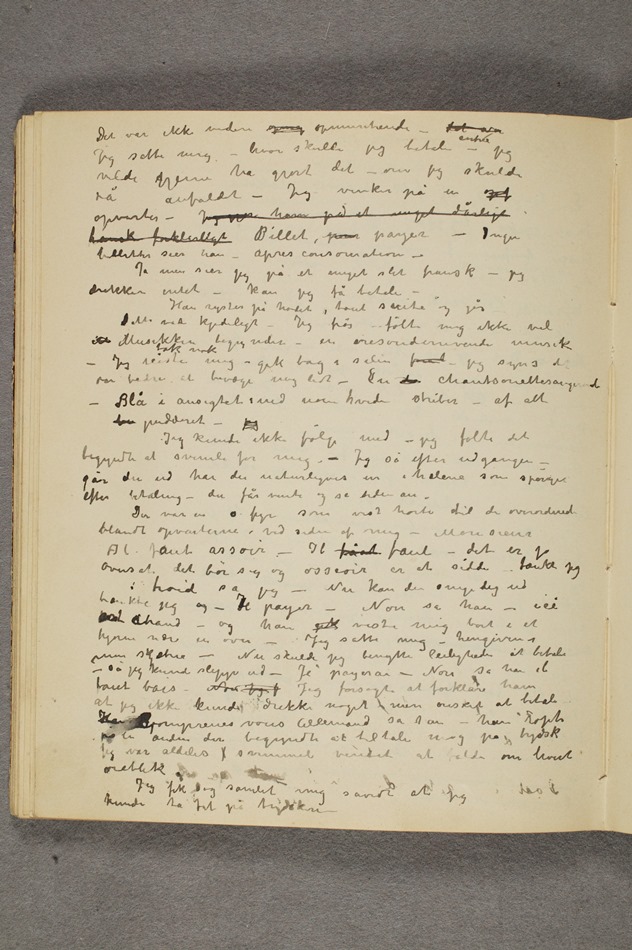 Det var ikke videre opmuntrende – det var
entré
Jeg satte mig – hvor skulde jeg betale – jeg
vilde gjerne ha gjort det – om jeg skulde
få anfaldt – Jeg vinker på en
opvarter – Jeg på et meget dårligt
fransk Billet, payer – Ingen
billetter sier han – apres consomation –
Ja men sier jeg på et meget slet fransk – jeg
drikker intet – kan jeg få betale –
Han ryster på hodet, tout suite og går
Dette var kjedeligt – Jeg frøs – følte mig ikke vel
Musikken begyndte – en øresønderrivende musik
tok nok
– Jeg reiste mig – gik bag i salen – jeg syns det
var bedre at bevæge mig lidt – En chantsonettesangerinde
– Blå i ansigtet med nom hvide striber – af alt
pudderet –
Jeg kunde ikke følge med – jeg følte det
begyndte at svimle for mig. – Jeg så efter udgangen –
går du ud har du naturligvis en i hælene som spørger
efter betaling – du får vente og se tiden an.
Der var en fyr som vist hørte til de overordnede
blandt opvarterne ved siden af mig – Monsieur
Al faut assoir – Il faut – det er jo
avuset det bør sig og osseoir er at sidde tænkte jeg
: hvoid sa jeg – Nu kan den snige dig ud
tænkte jeg og – Je payer – Non sa han – ici
chaud – og han viste mig bort i et
hjørne nær en ovn – Jeg satte mig – hengiven
min skjæbne – Nu skulde jeg benytte leiligheden at betale
– så jeg kunde slippe ud – Je payerai – Non sa han il
faut bois – Jeg forsøgte at forklare ham
at jeg ikke kunde drikke noget men ønsket at betale
comprenes vous Allemand sa han – han ropte
på en anden der begyndte at tiltale mig på tydsk
Jeg var aldeles svimmel ventet at falde om hvert
øieblik
Jeg fik dog samlet mig såvidt at jeg
kunde ta fat på tydsken